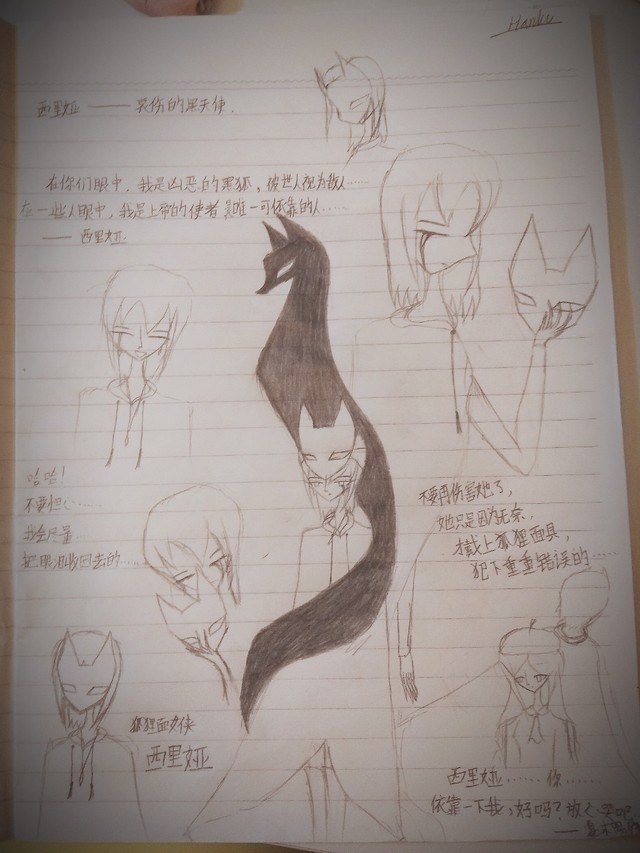 Hanku
西里娅——哀伤的黑天使.
在你们眼中,我是凶恶的黑狐,被世人视为敌人……
在一些人眼中,我是上帝的使者 是唯一可依靠的人……
——西里娅
哈哈!
不要担心……
我会尽量…
把眼泪收回去的……
不要再伤害她了,
她只是因为无奈,
戴上狐狸面具,
犯下重重错误的……
狐狸面女侠
西里娅
西里娅……你……
依靠一下我,好吗?放心哭吧